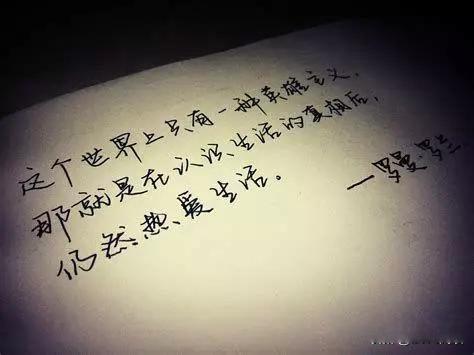 这个世界上只有一种英雄主义，
那就是在认识生活的真相后，
仍然热爱生活。
—罗曼·罗兰